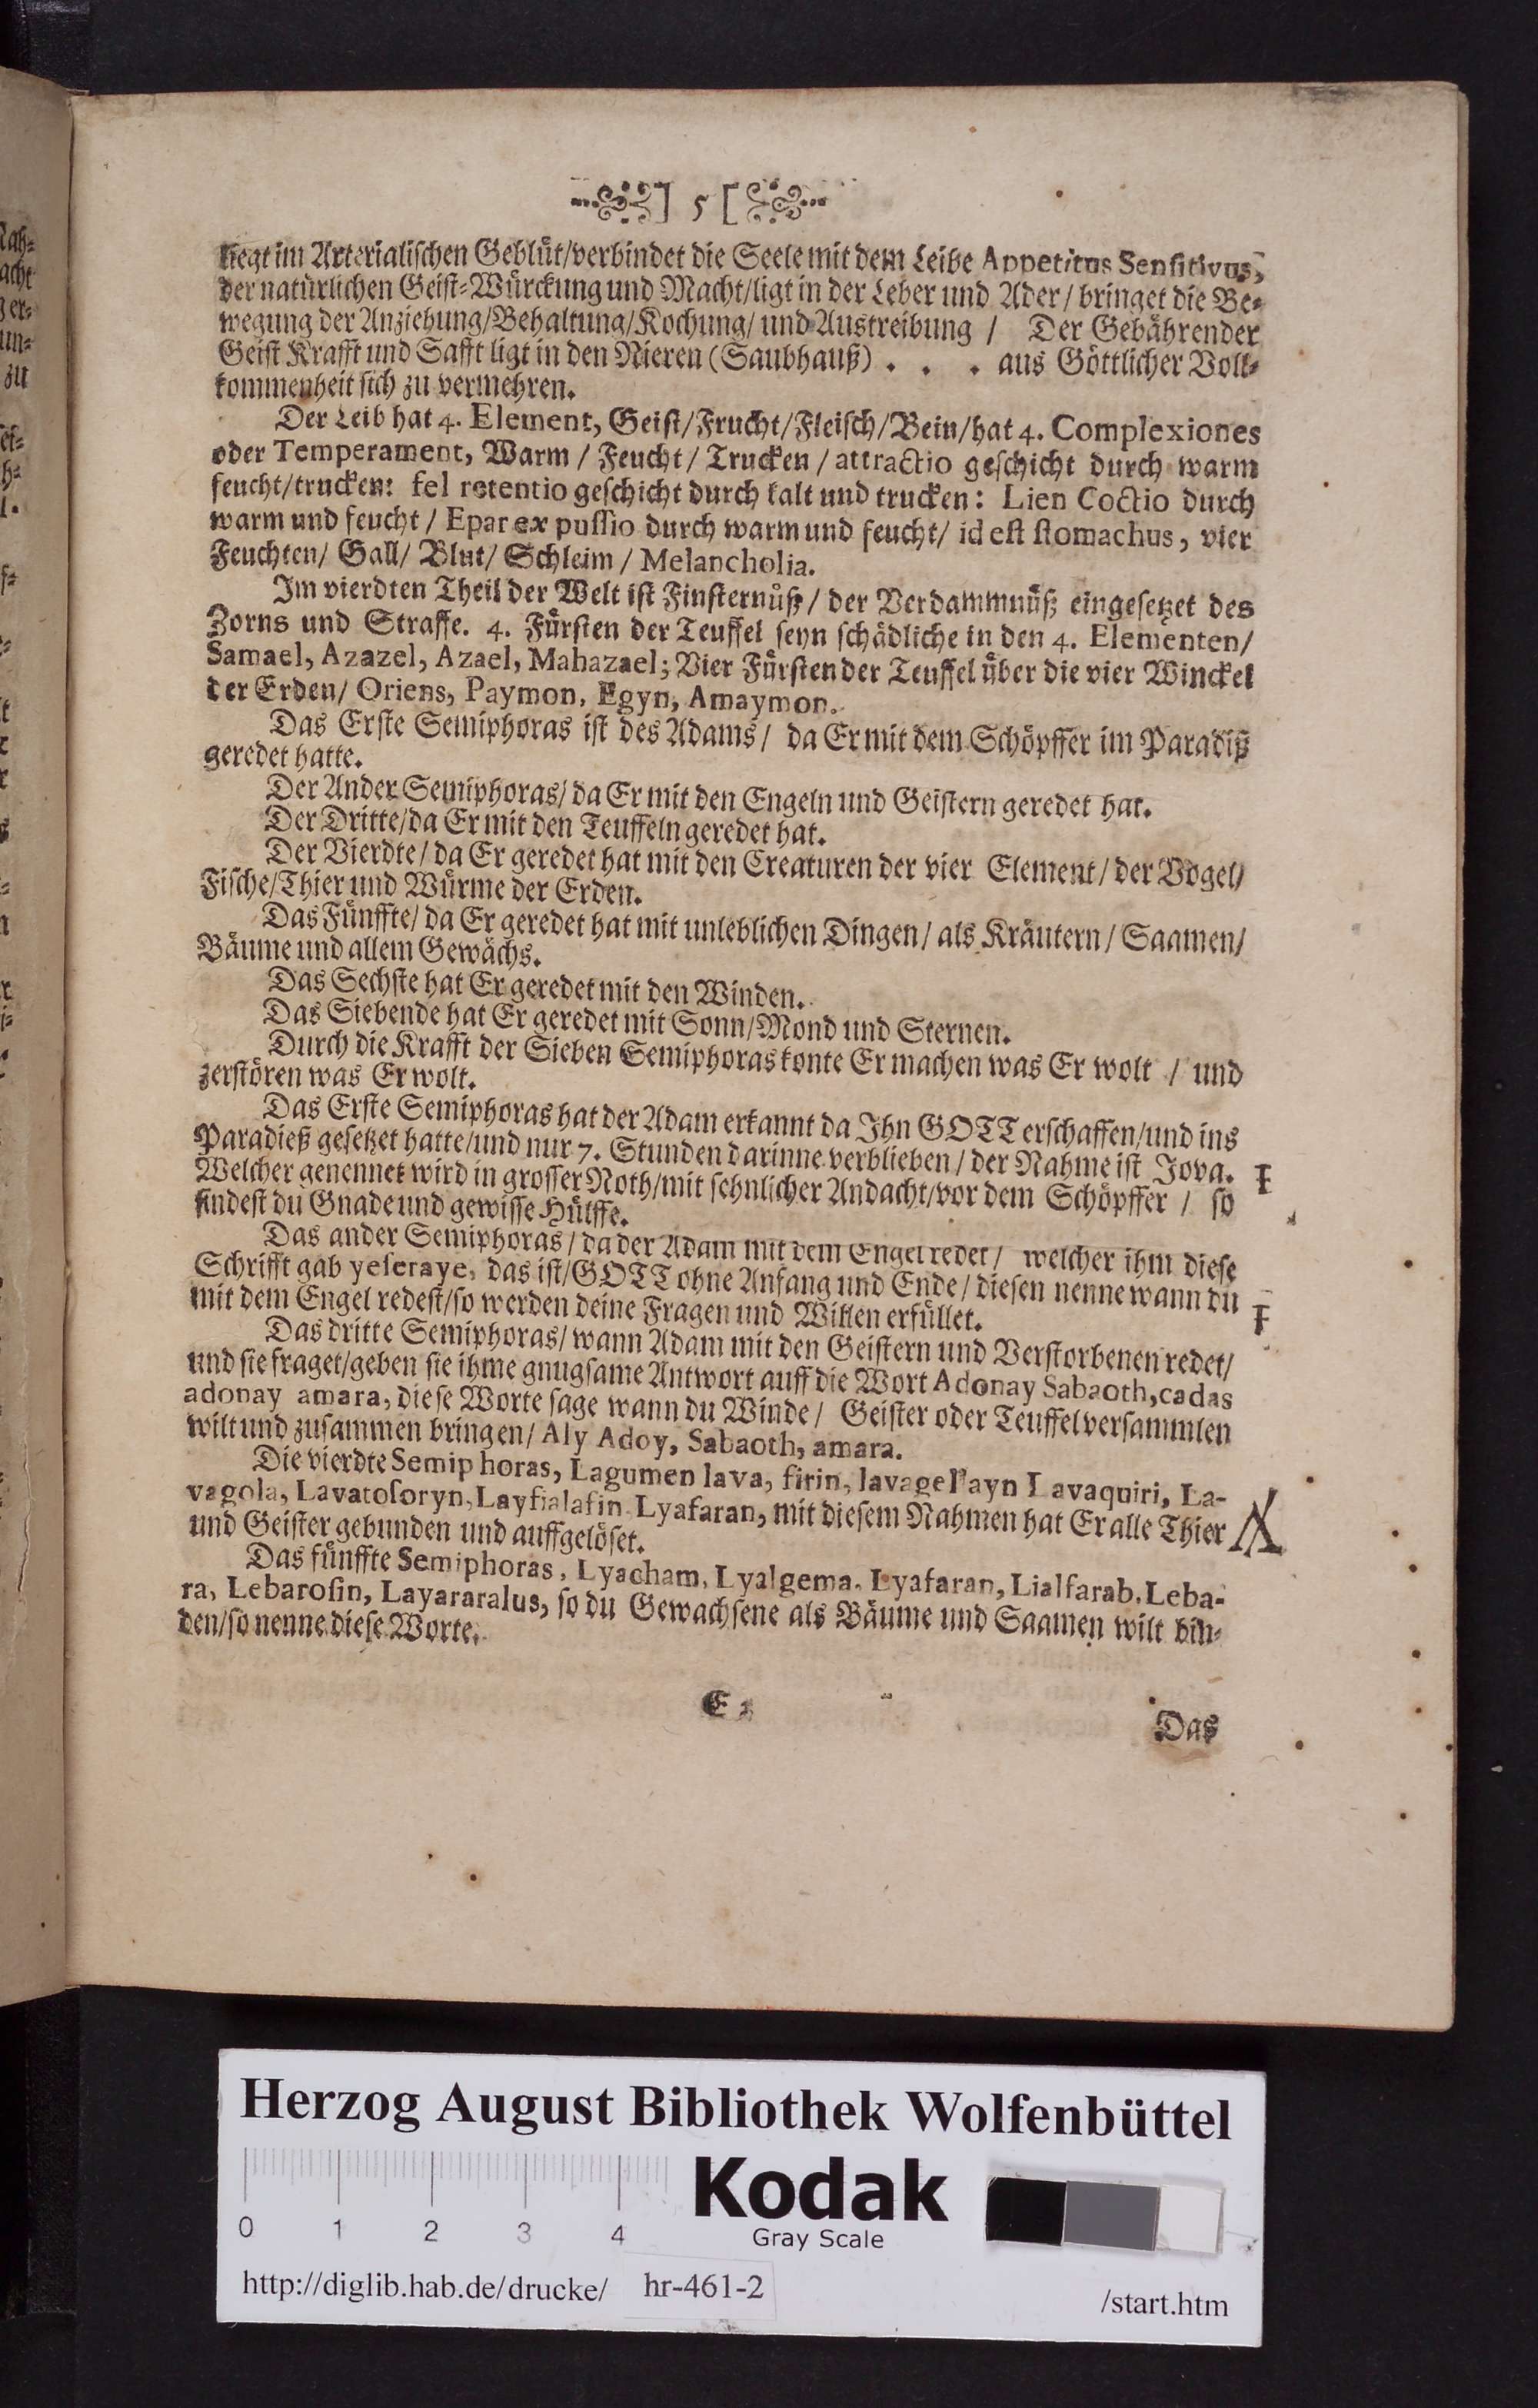 ] 5 [
liegt im Arterialischen Geblüt/verbindet die Seele mit dem Leibe Appetitus Sensitivus,
der natürlichen Geist-Würckung und Macht/ligt in der Leber und Ader/ bringet die Be-
wegung der Anziehung/Behaltung/Kochung/ und Austreibung / Der Gebährender
Geist Krafft und Safft ligt in den Nieren (Saubhauß) . . . aus Göttlicher Voll-
kommenheit sich zu vermehren.
Der Leib hat 4. Element, Geist/Frucht/Fleisch/Bein/hat 4. Complexiones
oder Temperament, Warm / Feucht/ Trucken / attractio geschicht durch warm
feucht/trucken: fel retentio geschicht durch kalt und trucken: Lien Coctio durch
warm und feucht / Epar ex pulsio durch warm und feucht/ id est stomachus, vier
Feuchten/ Gall/ Blut/ Schleim / Melancholia.
Im vierdten Theil der Welt ist Finsternüß/ der Verdammnüß eingesetzet des
Zorns und Straffe. 4. Fürsten der Teuffel seyn schädliche in den 4. Elementen/
Samael, Azazel, Azael, Mahazael; Vier Fürsten der Teuffel über die vier Winckel
der Erden/ Oriens, Paymon, Egyn, Amaymon.
Das Erste Semiphoras ist des Adams/ da Er mit dem Schöpffer im Paradiß
geredet hatte.
Der Ander Semiphoras/ da Er mit den Engeln und Geistern geredet hat.
Der Dritte/da Er mit den Teuffeln geredet hat.
Der Vierdte/ da Er geredet hat mit den Creaturen der vier Element/ der Vögel/
Fische/Thier und Würme der Erden.
Das Fünffte/ da Er geredet hat mit unleblichen Dingen/ als Kräutern/ Saamen/
Bäume und allem Gewächs.
Das Sechste hat Er geredet mit den Winden.
Das Siebende hat Er geredet mit Sonn/Mond und Sternen.
Durch die Krafft der Sieben Semiphoras konte Er machen was Er wolt / und
zerstören was Er wolt.
Das Erste Semiphoras hat der Adam erkannt da Ihn GOTT erschaffen/und ins
Paradieß gesetzet hatte/und nur 7. Stunden darinne verblieben/ der Nahme ist Jova.
Welcher genennet wird in grosser Noth/mit sehnlicher Andacht/vor dem Schöpffer / so
findest du Gnade und gewisse Hülffe.
Das ander Semiphoras/ da der Adam mit dem Engel redet/ welcher ihm diese
Schrifft gab yeseraye, das ist/GOTT ohne Anfang und Ende/ diesen nenne wann du
mit dem Engel redest/so werden deine Fragen und Willen erfüllet.
Das dritte Semiphoras/ wann Adam mit den Geistern und Verstorbenen redet/
und sie fraget/geben sie ihme gnugsame Antwort auff die Wort Adonay Sabaoth, cadas
adonay amara, diese Worte sage wann du Winde/ Geister oder Teuffel versammlen
wilt und zusammen bringen/ Aly Adoy, Sabaoth, amara.
Die vierdte Semiphoras, Lagumen lava, firin, lavagellayn Lavaquiri, La-
vagola, Lavatosoryn, Layfialafin Lyafaran, mit diesem Nahmen hat Er alle Thier
und Geister gebunden und auffgelöset.
Das fünffte Semiphoras, Lyacham, Lyalgema, Lyafaran, Lialfarab, Leba-
ra, Lebarosin, Layararalus, so du Gewachsene als Bäume und Saamen wilt bin-
den/so nenne diese Worte.
Das
Herzog August Bibliothek Wolfenbüttel
Kodak
0 1 2 3 4 Gray Scale
http://diglib.hab.de/drucke/ hr-461-2 /start.htm